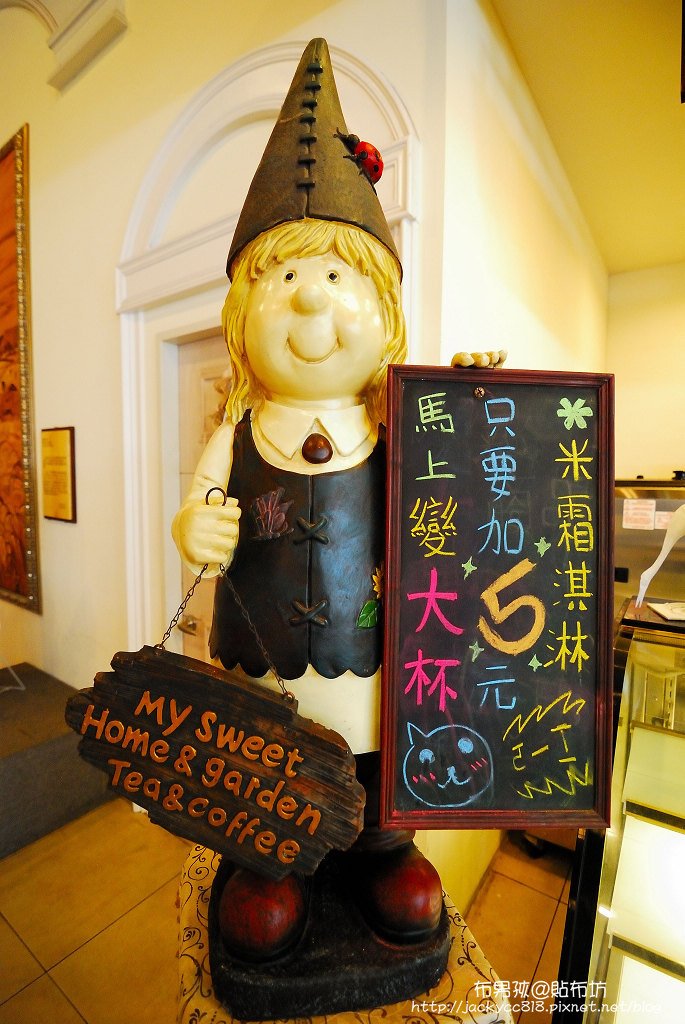 米霜淇淋
只要加5元
馬上變大杯
My Sweet
Home & garden
Tea & coffee
布男孩@貼布坊
http://jackycc818.pixnet.net/blog